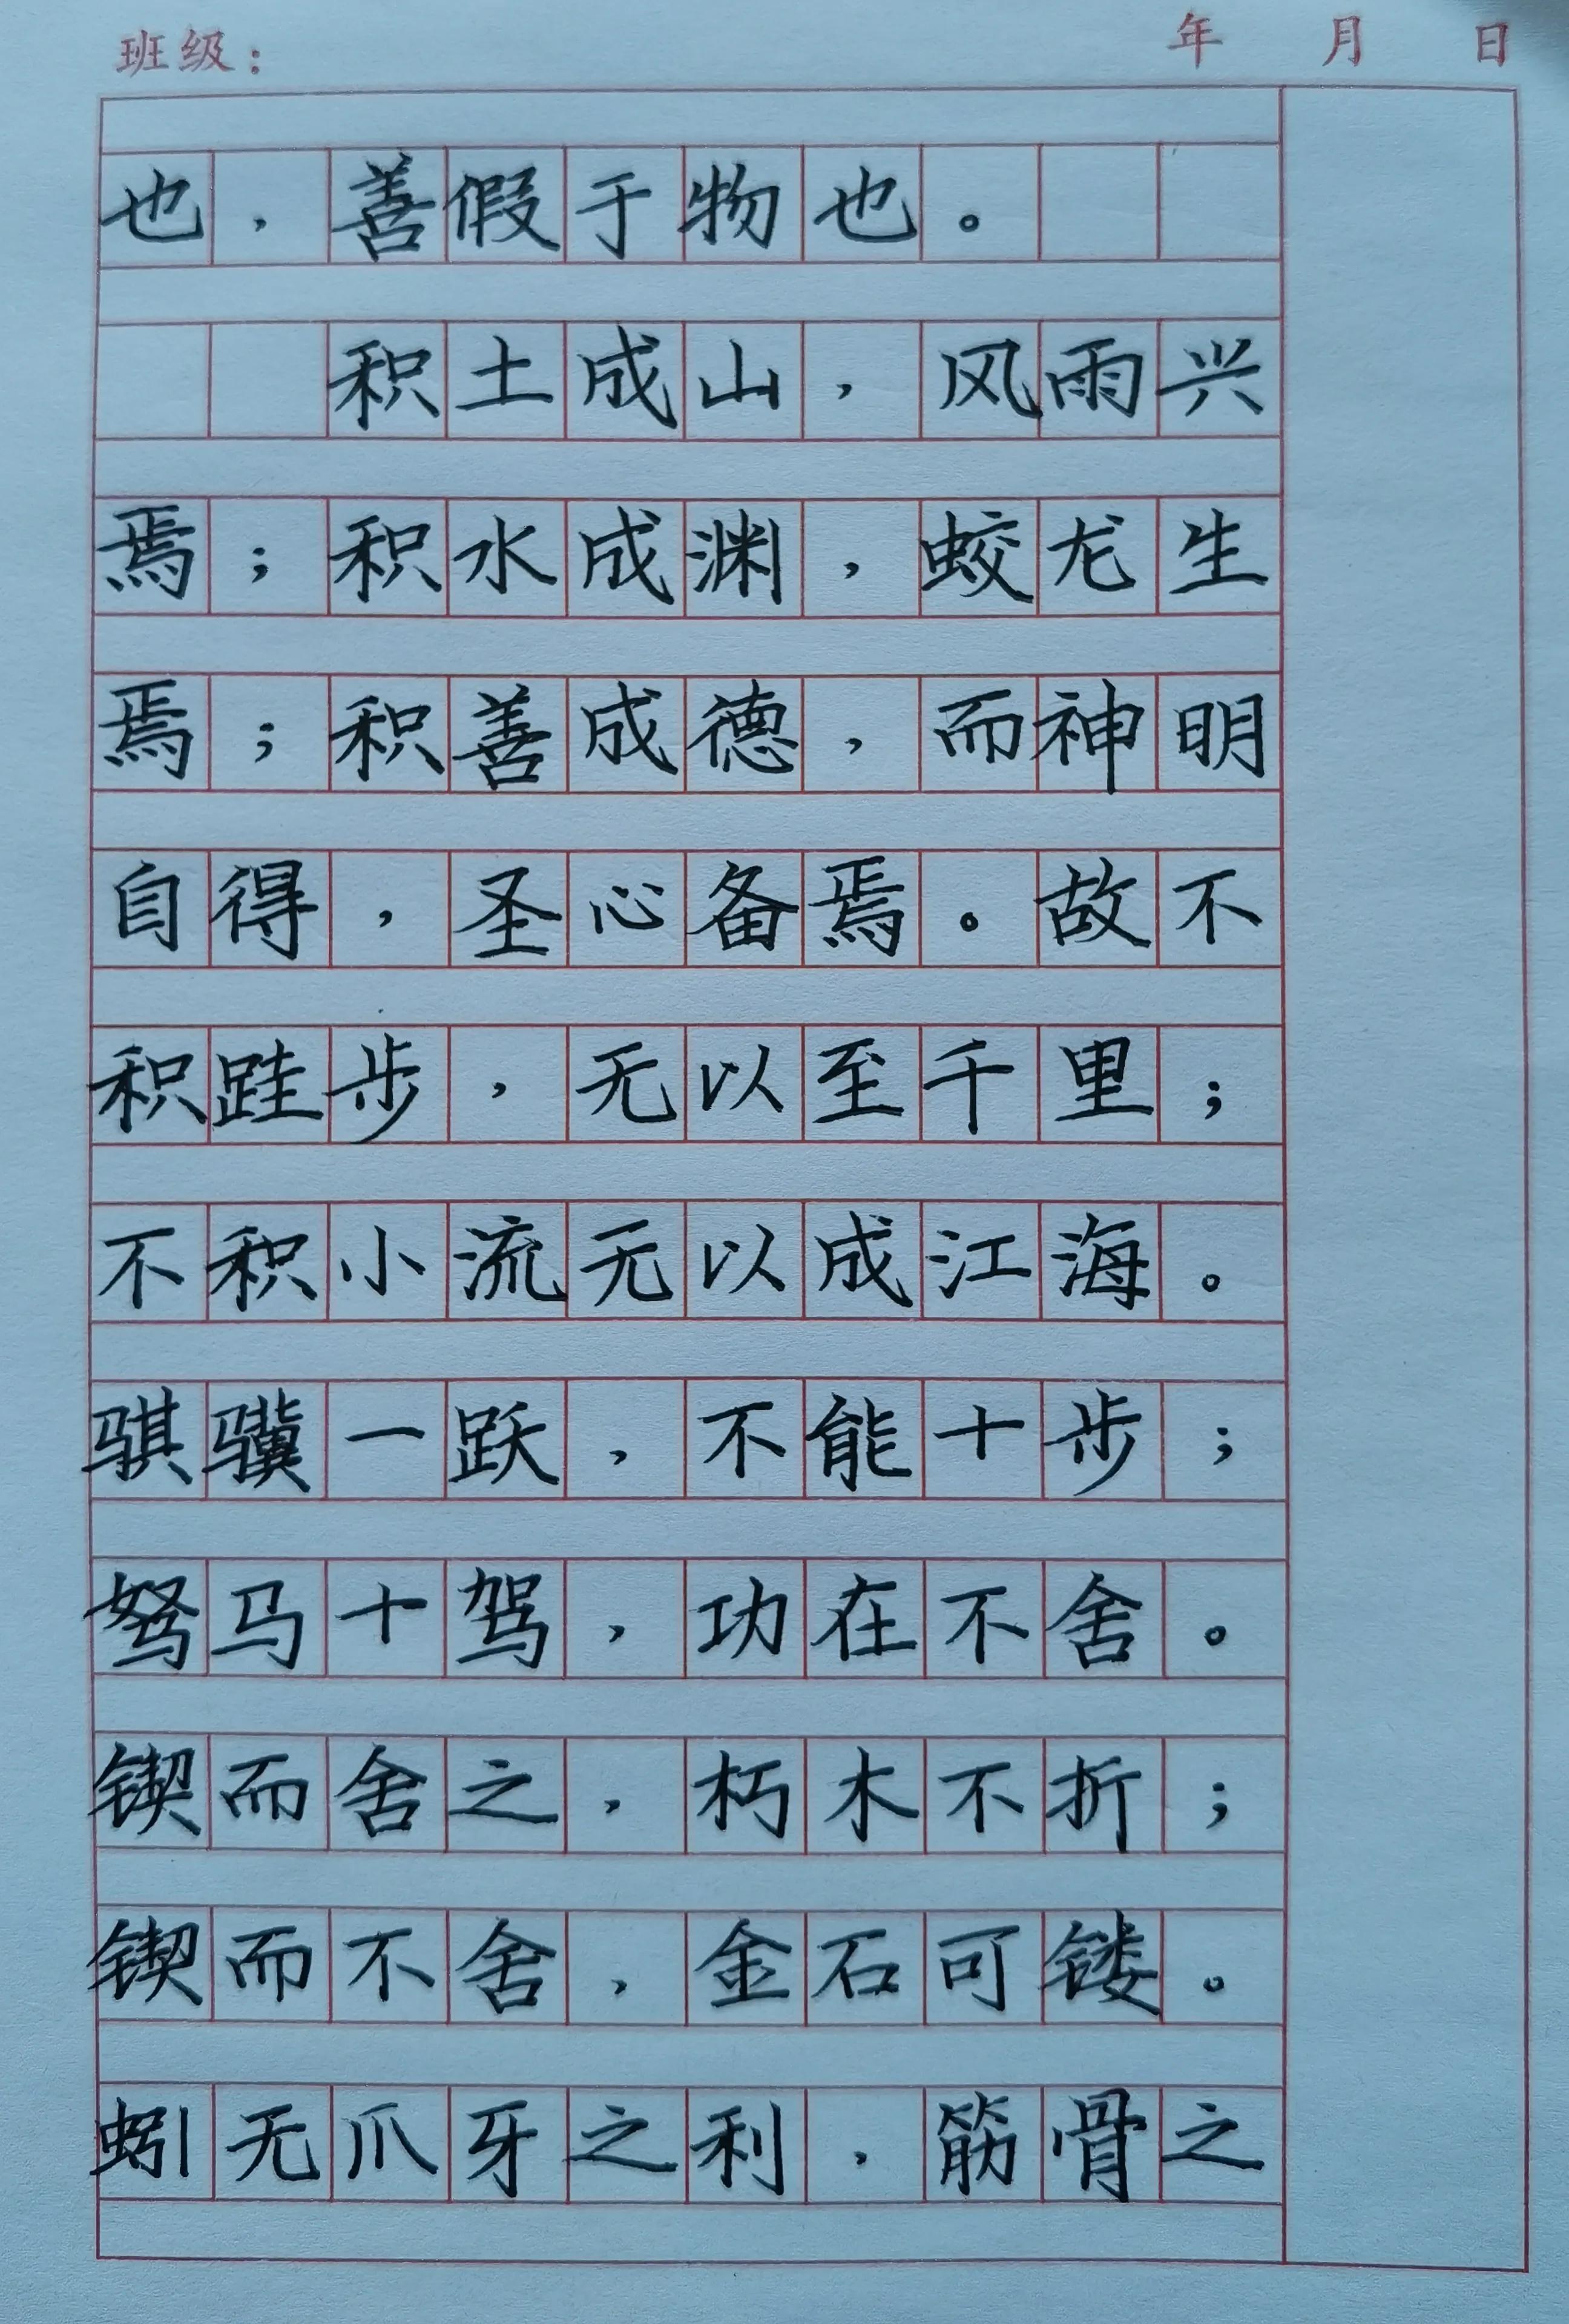 班级： 年 月 日
也，善假于物也。
积土成山，风雨兴
焉；积水成渊，蛟龙生
焉；积善成德，而神明
自得，圣心备焉。故不
积跬步，无以至千里；
不积小流无以成江海。
骐骥一跃，不能十步；
驽马十驾，功在不舍。
锲而舍之，朽木不折；
锲而不舍，金石可镂。
蚓无爪牙之利，筋骨之